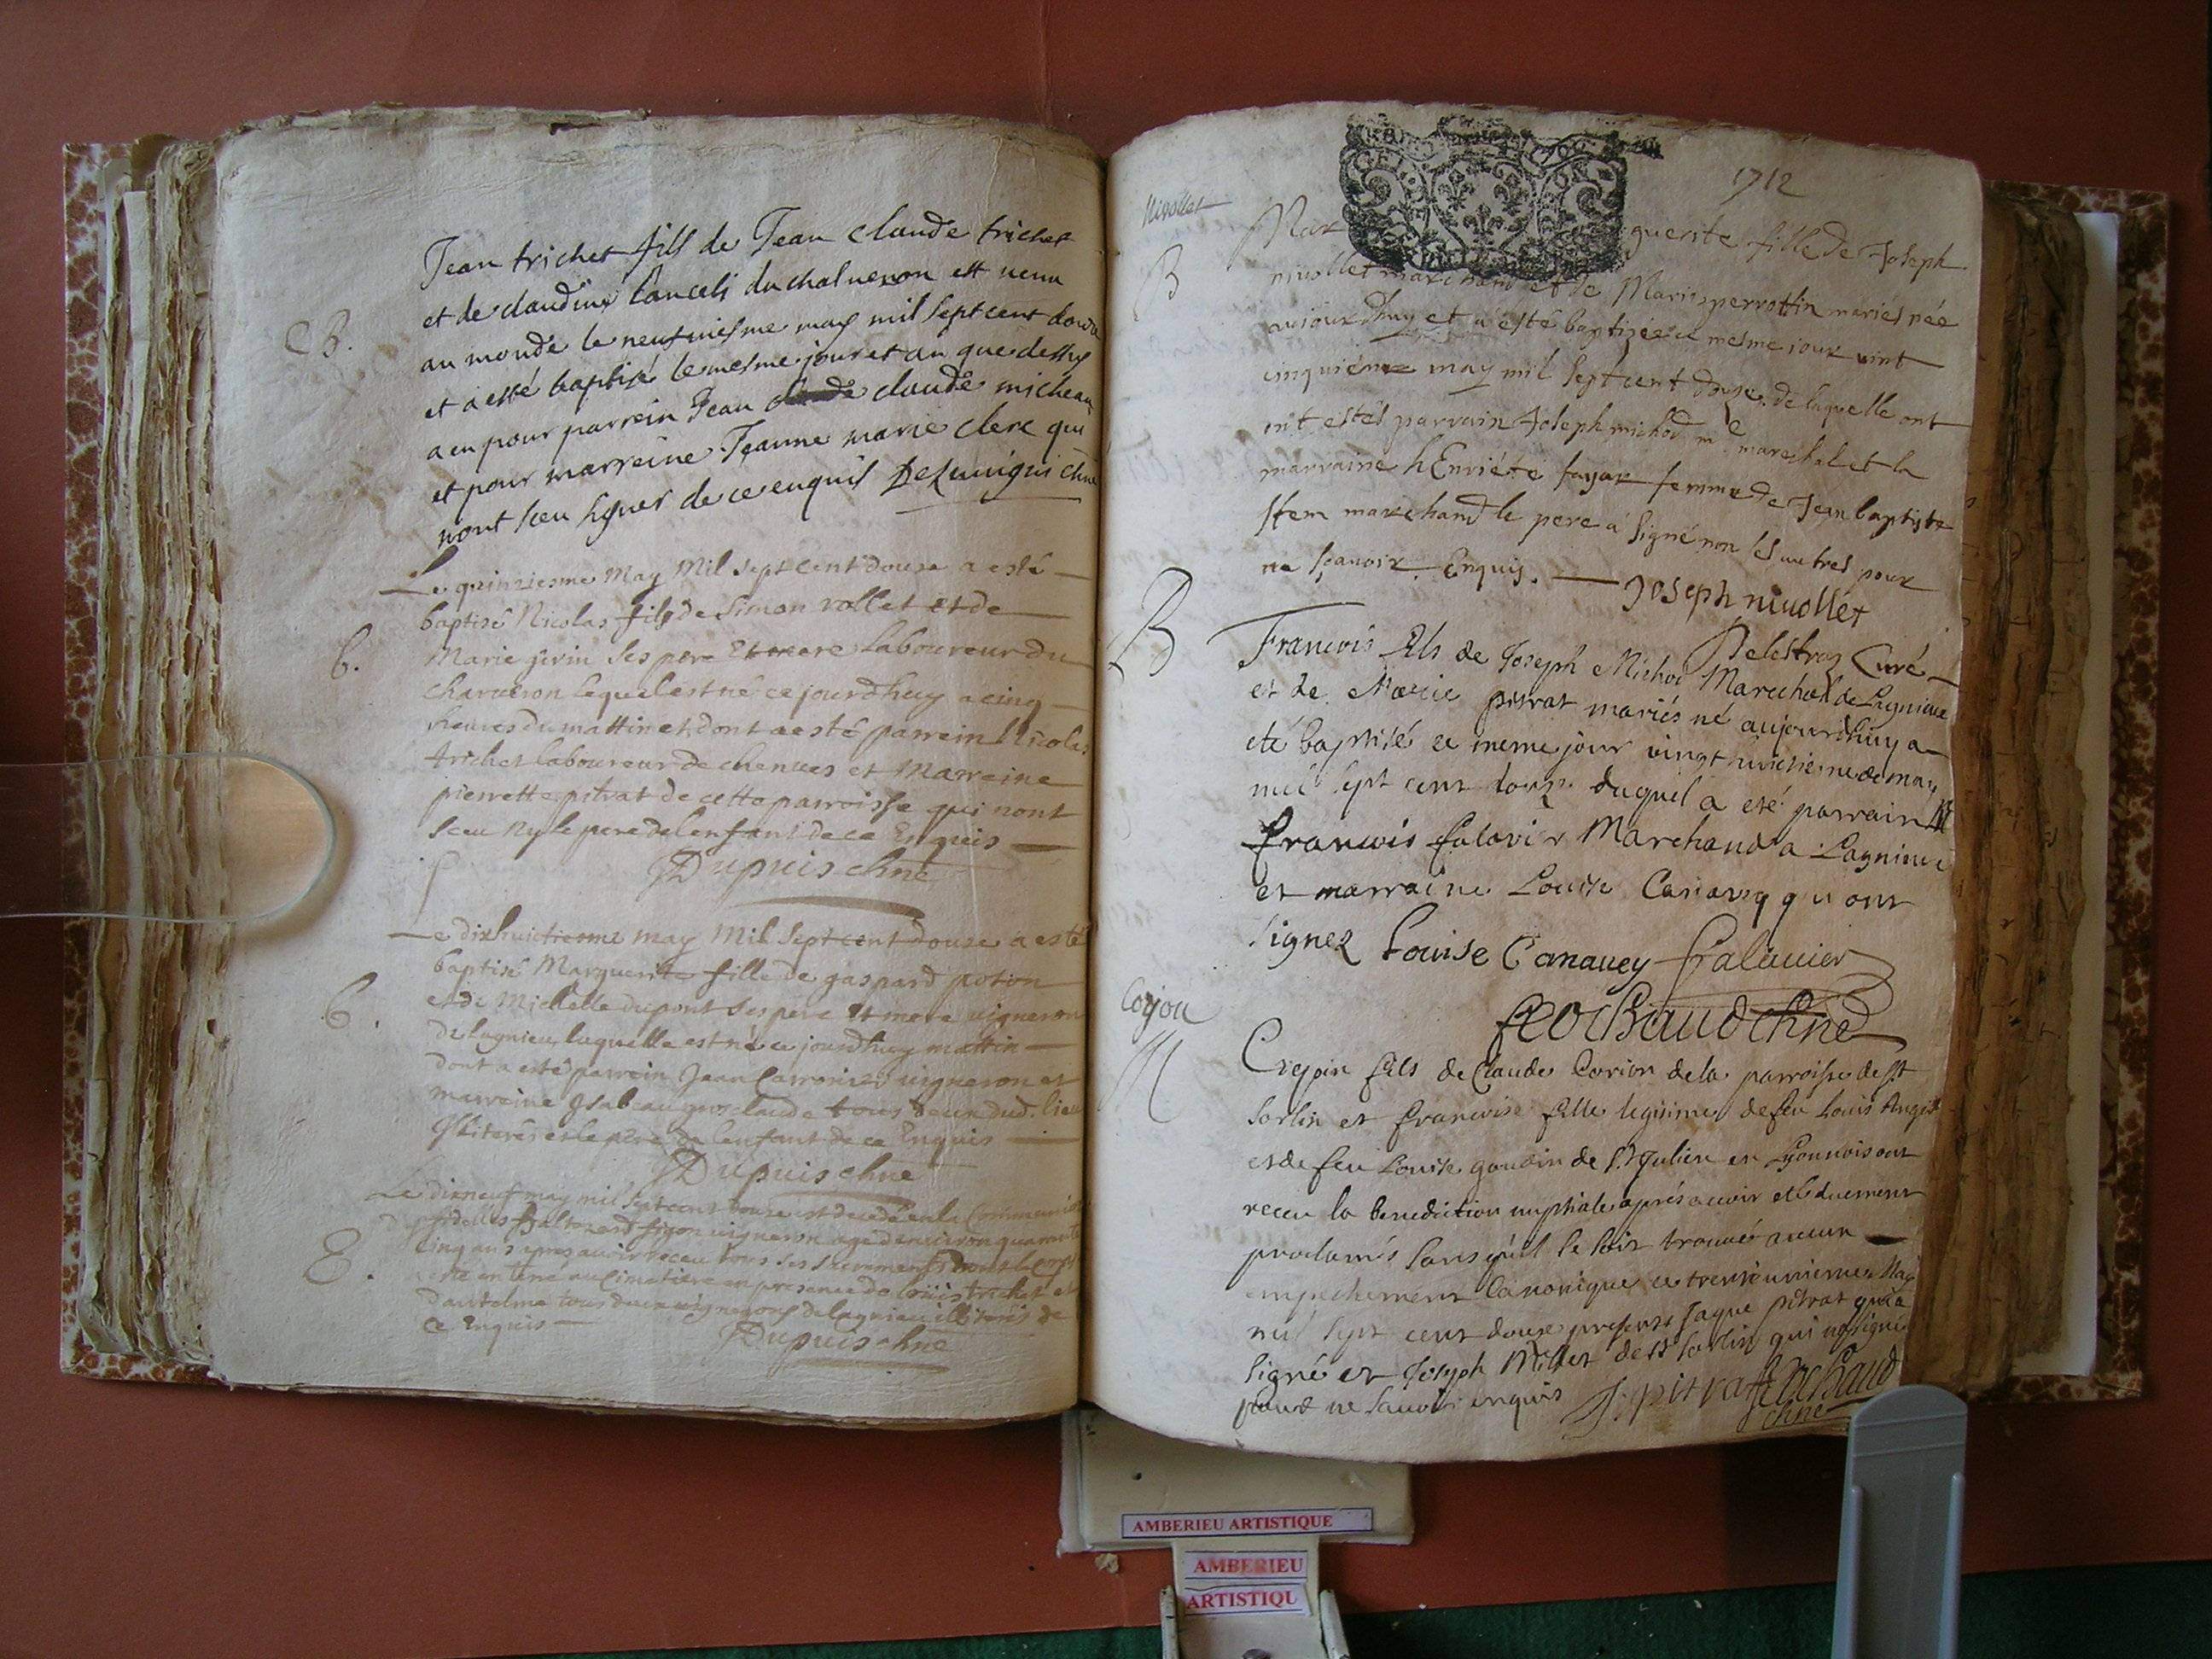 B.
Jean trichet fils de Jean claude trichet
et de claudine Lancels du chalueron est venu
au monde le neufuiesme may mil sept cent douze
et a esté baptisé le mesme jour et an que dessus
a eu pour parrein Jean claude micheau
et pour marreine Jeanne marie clerc qui
nont sceu signer de ce enquis
b.
Le quinziesme May Mil sept cent douse a esté
baptisé Nicolas fils de Simon vollet et de
Marie girin ses pere et mere laboureur du
charueron lequel est né ce jourdhuy a cinq
heures du mattin et dont a esté parrein Nicolas
trichet laboureur de chenues et Marreine
pierrette pitrat de cette parroisse qui nont
sceu ny le pere de lenfant de ce Enquis
Dupuis chne
b.
Le dixhuictiesme may Mil Sept cent douse a esté
baptisé Marguerite fille de gaspard poton
et de Michelle dupont ses pere et mere uigneron
de lagnieu laquelle est né ce jourdhuy mattin
dont a esté parrein Jean uigneron et
marreine Isabeau gros claude tous deux dud. lieu
Illiterés et le pere de lenfant de ce Enquis
Dupuis chne
E.
Le dixneuf may mil sept cent douze est decedé en la Communion
des fidelles Baltazard figon uigneron agé denuiron quarante
cinq ans apres auoir receu tous ses Sacrements dont le corps
a esté enterré au Cimetiere en presence de Loüis trichet et
dantelme tous deux uignerons de lagnieu illiterés de
ce Enquis
Dupuis chne
1712
Niuollet
B
Mar guerite fille de Joseph
niuollet marchand et de Marie perrottin mariés née
aujourdhuy et a esté baptizée ce mesme jour uint
cinquiéme may mil sept cent douze de laquelle ont
ont estés parrain Joseph michod me mareshal et la
marraine hEnriéte fayar femme de Jean baptiste
Stem marchand le pere a signé non les autres pour
ne sçauoir Enquis. Joseph niuollet
Delestraz Curé
B
Francois fils de Joseph Michod Marechal de Lagnieu
et de Marie pitrat mariés né aujourdhuy a
été baptisé ce meme jour vingt huictieme de may
mil sept cent douze duquel a eté parrain
francois falavier Marchand a Lagnieu
et marraine Louise Canavey qui ont
signez Louise Canauey falauier
feochaud chne
Corjon
M
Crepin fils de Claude Corion de la parroisse de St
sorlin et francoise fille legitime de feu Louis Angit
et de feu Louise goudin de St Julien en Lyonnois ont
receu la benediction nuptiale aprés auoir eté duement
proclamés sans qu'il se soit trouué aucun
empechement Canonique ce trente unieme May
mil sept cent douze presents Jaque pitrat qui a
signé et Joseph Millet de St sorlin qui na signé
pour ne sauoir enquis J. pitrat feochaud
chne
AMBERIEU ARTISTIQUE
AMBERIEU
ARTISTIQU